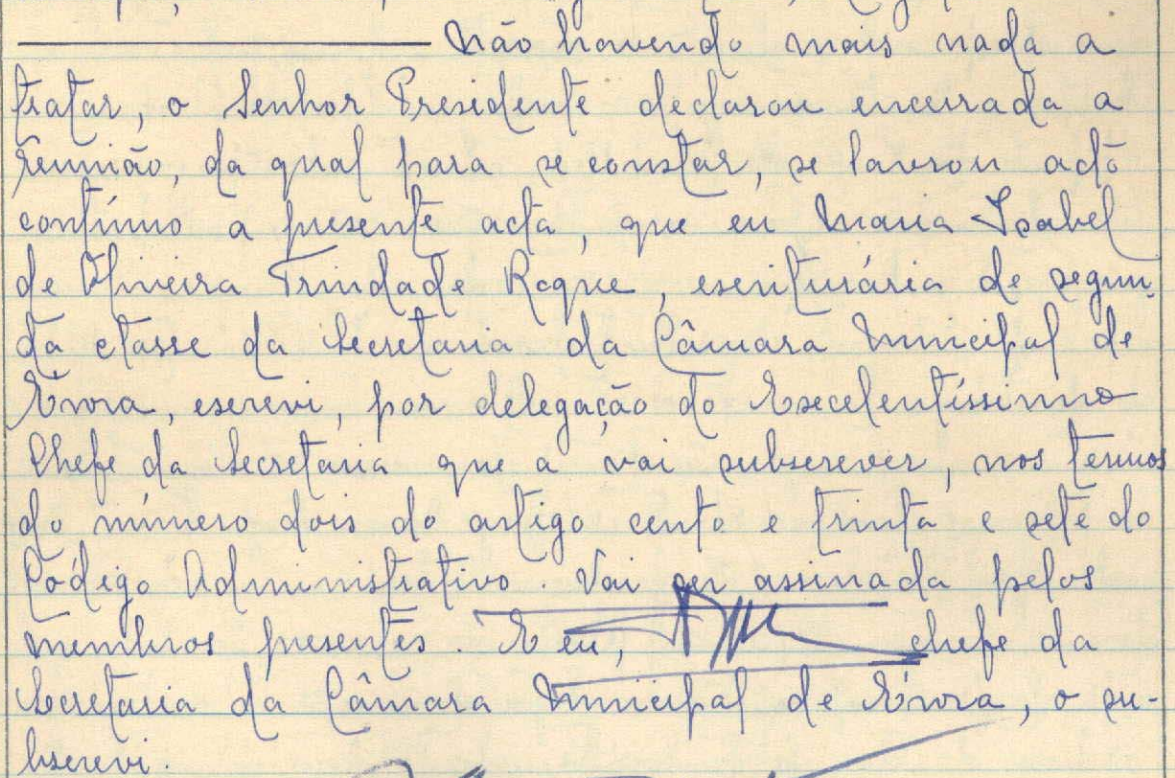 Não havendo mais nada a
tratar, o Senhor Presidente declarou encerrada a
reunião, da qual para se constar, se lavrou acto
contínuo a presente acta, que eu Maria Isabel
de Oliveira Trindade Roque, escriturária de segun-
da classe da Secretaria da Câmara Municipal de
Évora, escrevi, por delegação do Excelentíssimo
Chefe da Secretaria que a vai subscrever, nos termos
do número dois do artigo cento e trinta e sete do
Código Administrativo. Vai ser assinada pelos
membros presentes. E eu, chefe da
Secretaria da Câmara Municipal de Évora, o su-
bscrevi.